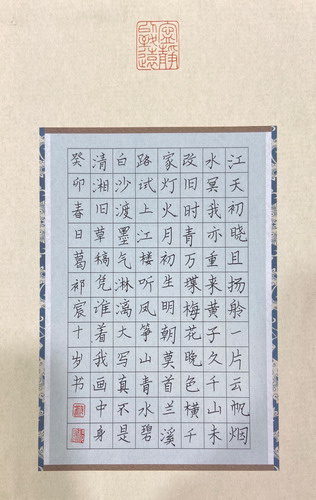 寧靜
致遠
江天初晓且扬舲一片云帆烟
水冥我亦重来黄子久千山未
改旧时青万堞梅花晚色横千
家灯火月初生明朝莫首兰溪
路试上江楼听凤筝山青水碧
白沙渡墨气淋漓大写真不是
清湘旧草稿凭谁着我画中身
癸卯春日葛祁宸十岁书